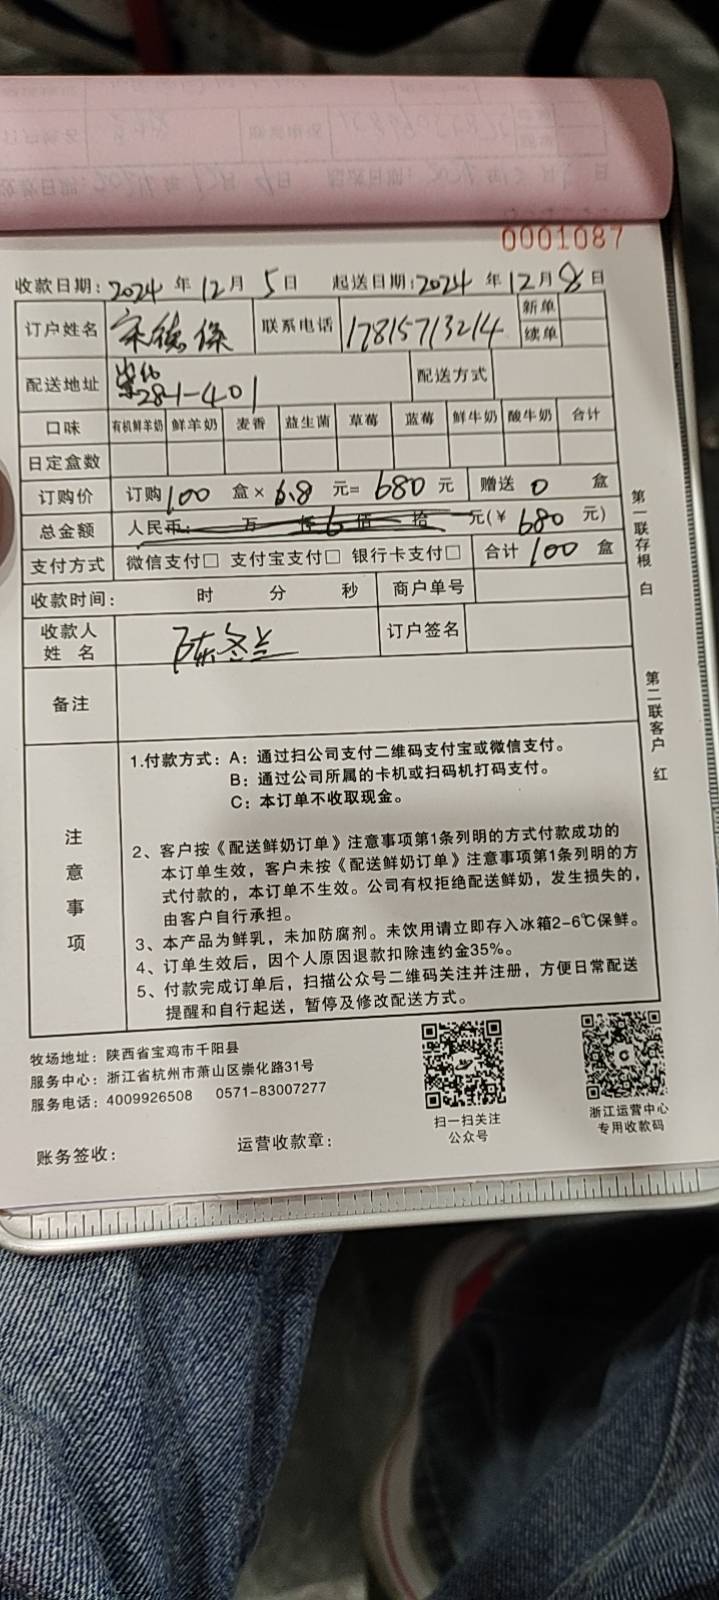 0001087
收款日期: 2024 年 12 月 5 日 起送日期: 2024 年 12 月 8 日
订户姓名 宋德保 联系电话 17815713214 新单
续单
配送地址 崇化 28-1-401 配送方式
口味 有机鲜羊奶 鲜羊奶 麦香 益生菌 草莓 蓝莓 鲜牛奶 酸牛奶 合计
日定盒数
订购价 订购 100 盒× 6.8 元= 680 元 赠送 0 盒
总金额 人民币: 万 仟 6 佰 拾 元(¥ 680 元)
支付方式 微信支付□ 支付宝支付□ 银行卡支付□ 合计 100 盒
收款时间: 时 分 秒 商户单号
收款人姓名 陈冬兰 订户签名
备注
注意事项
1.付款方式: A: 通过扫公司支付二维码支付宝或微信支付。
B: 通过公司所属的卡机或扫码机打码支付。
C: 本订单不收取现金。
2、客户按《配送鲜奶订单》注意事项第1条列明的方式付款成功的
本订单生效，客户未按《配送鲜奶订单》注意事项第1条列明的方
式付款的，本订单不生效。公司有权拒绝配送鲜奶，发生损失的，
由客户自行承担。
3、本产品为鲜乳，未加防腐剂。未饮用请立即存入冰箱2-6℃保鲜。
4、订单生效后，因个人原因退款扣除违约金35%。
5、付款完成订单后，扫描公众号二维码关注并注册，方便日常配送
提醒和自行起送，暂停及修改配送方式。
第一联存根 白
第二联客户 红
牧场地址: 陕西省宝鸡市千阳县
服务中心: 浙江省杭州市萧山区崇化路31号
服务电话: 4009926508 0571-83007277
扫一扫关注
公众号
浙江运营中心
专用收款码
账务签收:
运营收款章: